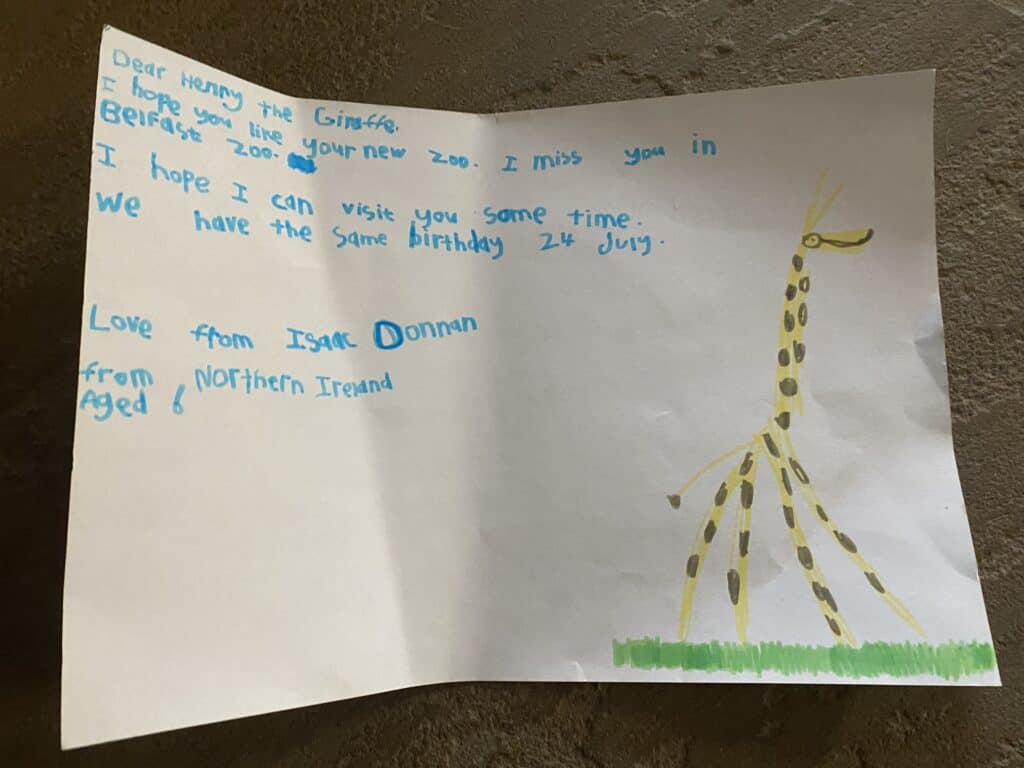 Dear Henny the Giraffe.
I hope you like your new zoo. I miss you in
Belfast zoo.
I hope I can visit you some time.
We have the same birthday 24 July.
Love from Isaac Donnan
from Northern Ireland
Aged 6